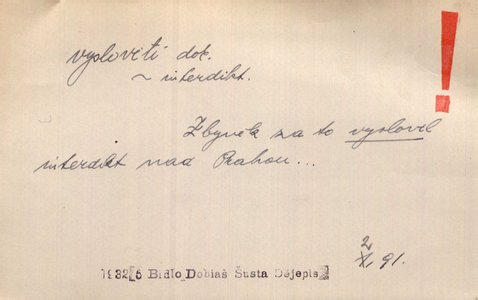 vysloviti dok.
~ interdikt.
Zbyněk za to vyslovil
interdikt nad Prahou...
2
X, 91.
1932[5 Bidlo Dobiáš Šusta Dějepis